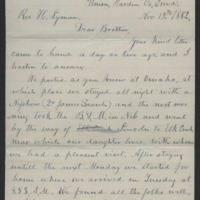 Union, Hardin Co, Iowa.
Nov 13th/1882,
Rev H. Lyman,
Dear Brother,
Your kind letter
came to hand a day or two ago and I
hasten to answer.
We parted as you know at Omaha, at
which place we stayed all night with a
Nephew and the next mor
ning took the B. & M. in Neb and went
by the way of Lincoln to
Near which one daughter lives, with whom
we had a pleasant visit. After staying
untill the next Monday we started for
home where we arrived on Tuesday at
We found all the folks well,